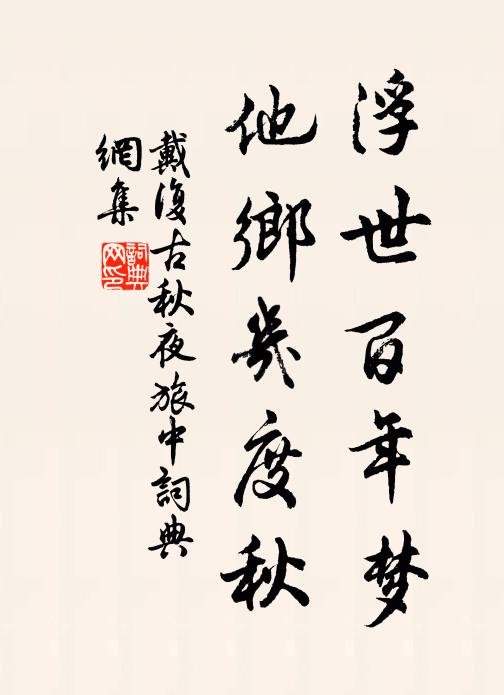 浮世百年梦
他鄉幾度秋
戴復古秋夜旅中詞典
網集
詞典网印